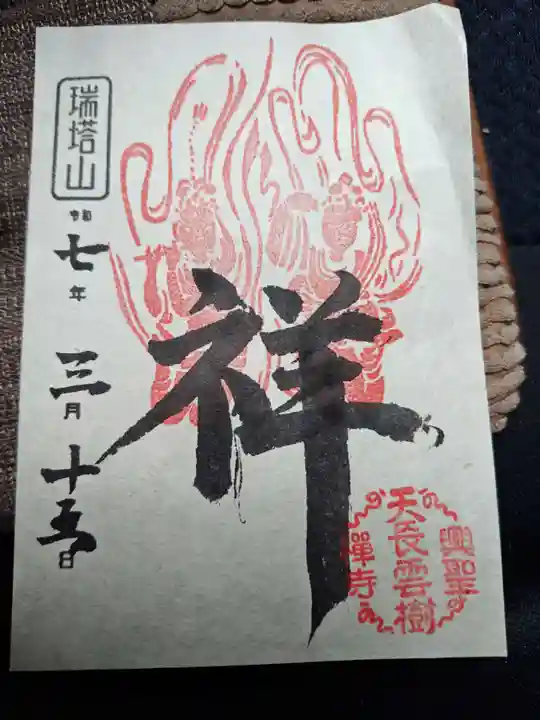 祥
瑞塔山
令和七年 三月十五日
興聖
天長雲樹
禅寺